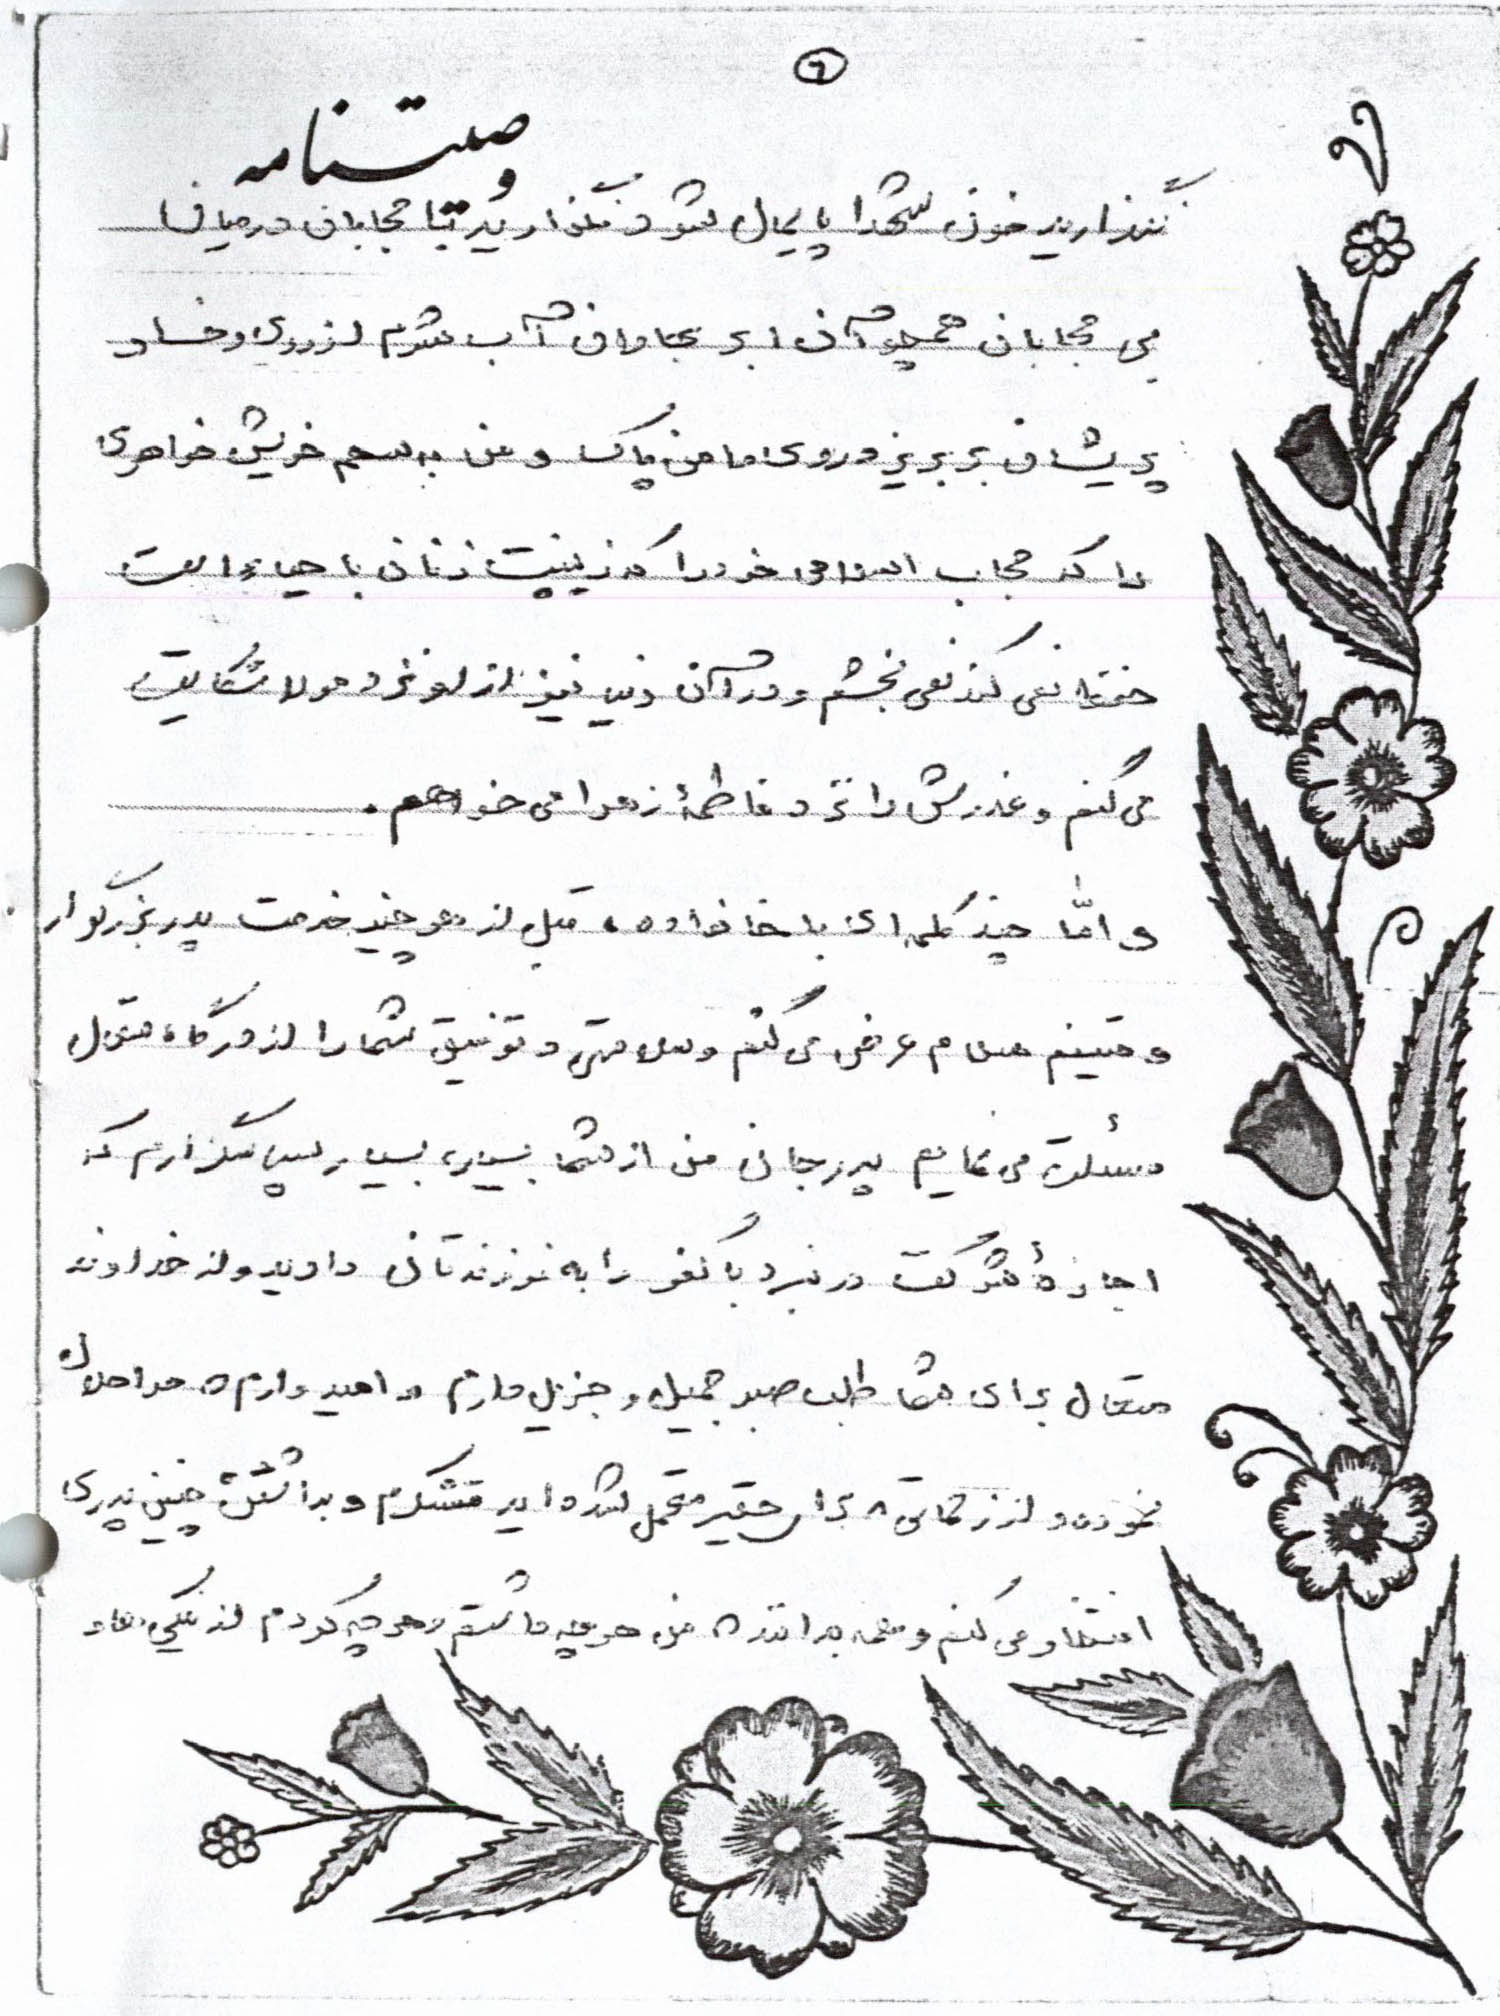 ۶
وصیتنامه
نگذارید خون شهدا پایمال شود نگذارید تا حجابان در میان
بی حجابان همچو آن ابر بهاران آب شرم از روی رخسار
پریشان بر بریزد روی دامن پاک و من به سهم خویش خواهری
را که حجاب اسلامی خود را که زینت زنان با حیا است
حفظ نمی کند نمی بخشم و در آن دنیا نیز از او نزد مولا شکایت
می کنم و عذرش را نزد فاطمهٔ زهرا می خواهم .
و امّا چند کلمه ای با خانواده ، قبل از هر چیز خدمت پدر بزرگوار
و متینم سلام عرض می کنم و سلامتی و توفیق شما را از درگاه متعال
مسئلت می نمایم پدر جان من از شما بسیار، بسیار سپاسگزارم که
اجازهٔ شرکت در نبرد با کفر را به فرزندتان دادید و از خداوند
متعال برای شما طلب صبر جمیل و جزیل دارم و امیدوارم مرا حلال
نموده و از زحماتی که برای حقیر متحمل شده اید متشکرم و بداشتن چنین پدری
افتخار می کنم و من هر چه داشتم و هر چه کردم از نیکی ها و